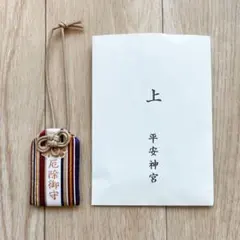 厄除御守
上
平安神宮